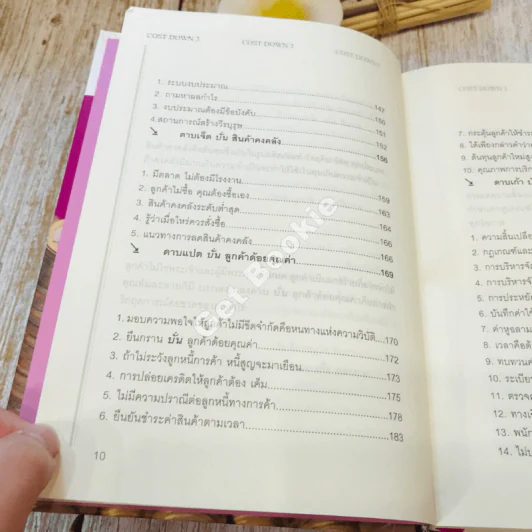 COST DOWN 2 COST DOWN 2 COST DOWN 2
1. ระบบงบประมาณ 147
2. ถามหาผลกำไร 150
3. งบประมาณต้องมีข้อบังคับ 151
4.สถานการณ์สร้างวีรบุรุษ 152
↘ ดาบเจ็ด บั่น สินค้าคงคลัง 156
1. มีตลาด ไม่ต้องมีโรงงาน 159
2. ลูกค้าไม่ซื้อ คุณต้องซื้อเอง 163
3. สินค้าคงคลังระดับต่ำสุด 164
4. รู้ว่าเมื่อไหร่ควรสั่งซื้อ 166
5. แนวทางการลดสินค้าคงคลัง 166
↘ ดาบแปด บั่น ลูกค้าด้อยคุณค่า 169
1.มอบความพอใจให้ลูกค้าไม่มีขีดจำกัดคือหนทางแห่งความวิบัติ 170
2. ยืนกราน บั่น ลูกค้าด้อยคุณค่า 172
3. ถ้าไม่ระวังลูกหนี้การค้า หนี้สูญจะมาเยือน 173
4. การปล่อยเครดิตให้ลูกค้าต้อง เค็ม 175
5. ไม่มีความปราณีต่อลูกหนี้ทางการค้า 178
6. ยืนยันชำระค่าสินค้าตามเวลา 183
10
Get Bookie
COST DOWN 2
7. กระตุ้นลูกค้าให้ชำร
8. ได้เพียงกล่าวคำว่า
9. ต้นทุนลูกค้าใหม่สูง
10. คุณภาพการบริก
↘ ดาบเก้า บั่
1. ความสิ้นเปลือ
2. กฎเกณฑ์และ
3. การบริหารจั
4. การบริหารจั
5. การประหยั
6. บันทึกค่าใ
7. ค่าหูอลาม
8. เวลาคือต้
9. ทบทวน
10. ระเบีย
11. ตรวจส
12. ทางเ
13. พนัก
14. ไม่ป